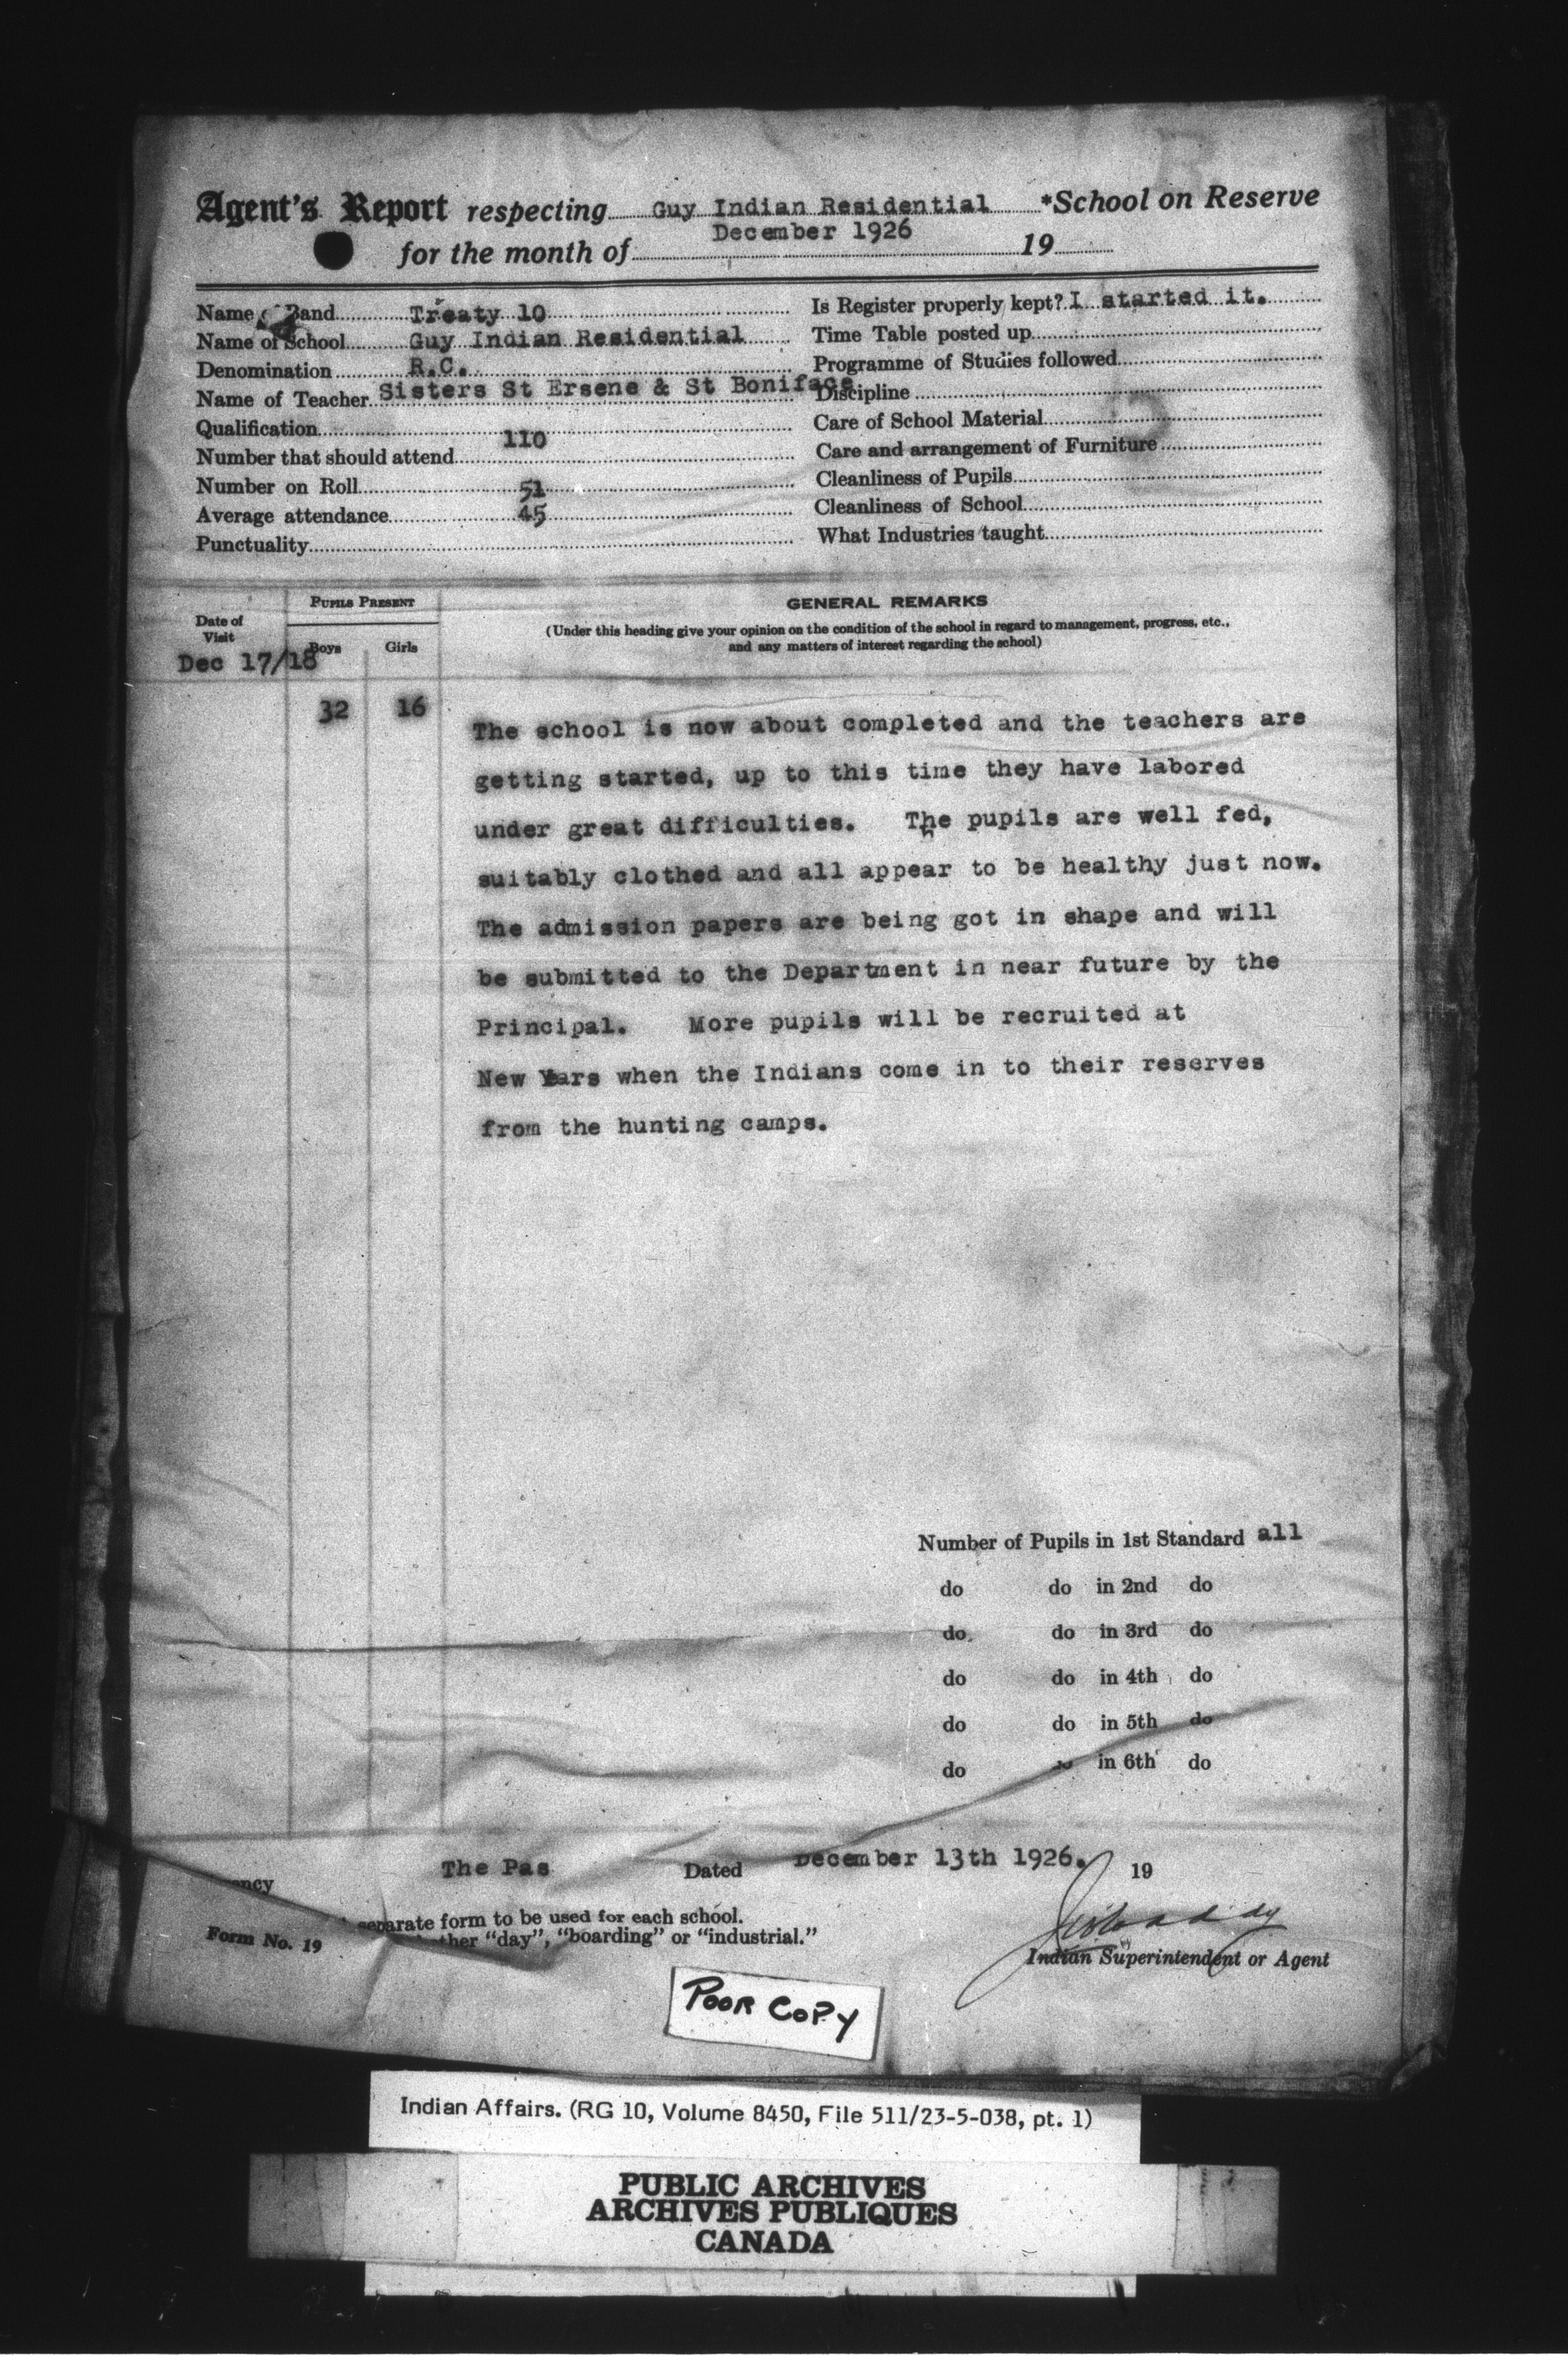 Agent's Report respecting Guy Indian Residential *School on Reserve
for the month of December 1926 19
Name of Band Treaty 10
Name of School Guy Indian Residential
Denomination R.C.
Name of Teacher Sisters St Ersene & St Boniface
Qualification
Number that should attend 110
Number on Roll 51
Average attendance 45
Punctuality
Is Register properly kept? I started it.
Time Table posted up
Programme of Studies followed
Discipline
Care of School Material
Care and arrangement of Furniture
Cleanliness of Pupils
Cleanliness of School
What Industries taught
Date of Visit
PUPILS PRESENT
Boys Girls
GENERAL REMARKS
(Under this heading give your opinion on the condition of the school in regard to management, progress, etc.,
and any matters of interest regarding the school)
Dec 17/18
32 16
The school is now about completed and the teachers are
getting started, up to this time they have labored
under great difficulties. The pupils are well fed,
suitably clothed and all appear to be healthy just now.
The admission papers are being got in shape and will
be submitted to the Department in near future by the
Principal. More pupils will be recruited at
New Years when the Indians come in to their reserves
from the hunting camps.
Number of Pupils in 1st Standard all
do do in 2nd do
do do in 3rd do
do do in 4th do
do do in 5th do
do do in 6th do
ency The Pas Dated December 13th 1926. 19
separate form to be used for each school.
ther "day", "boarding" or "industrial."
Form No. 19
Indian Superintendent or Agent
POOR COPY
Indian Affairs. (RG 10, Volume 8450, File 511/23-5-038, pt. 1)
PUBLIC ARCHIVES
ARCHIVES PUBLIQUES
CANADA